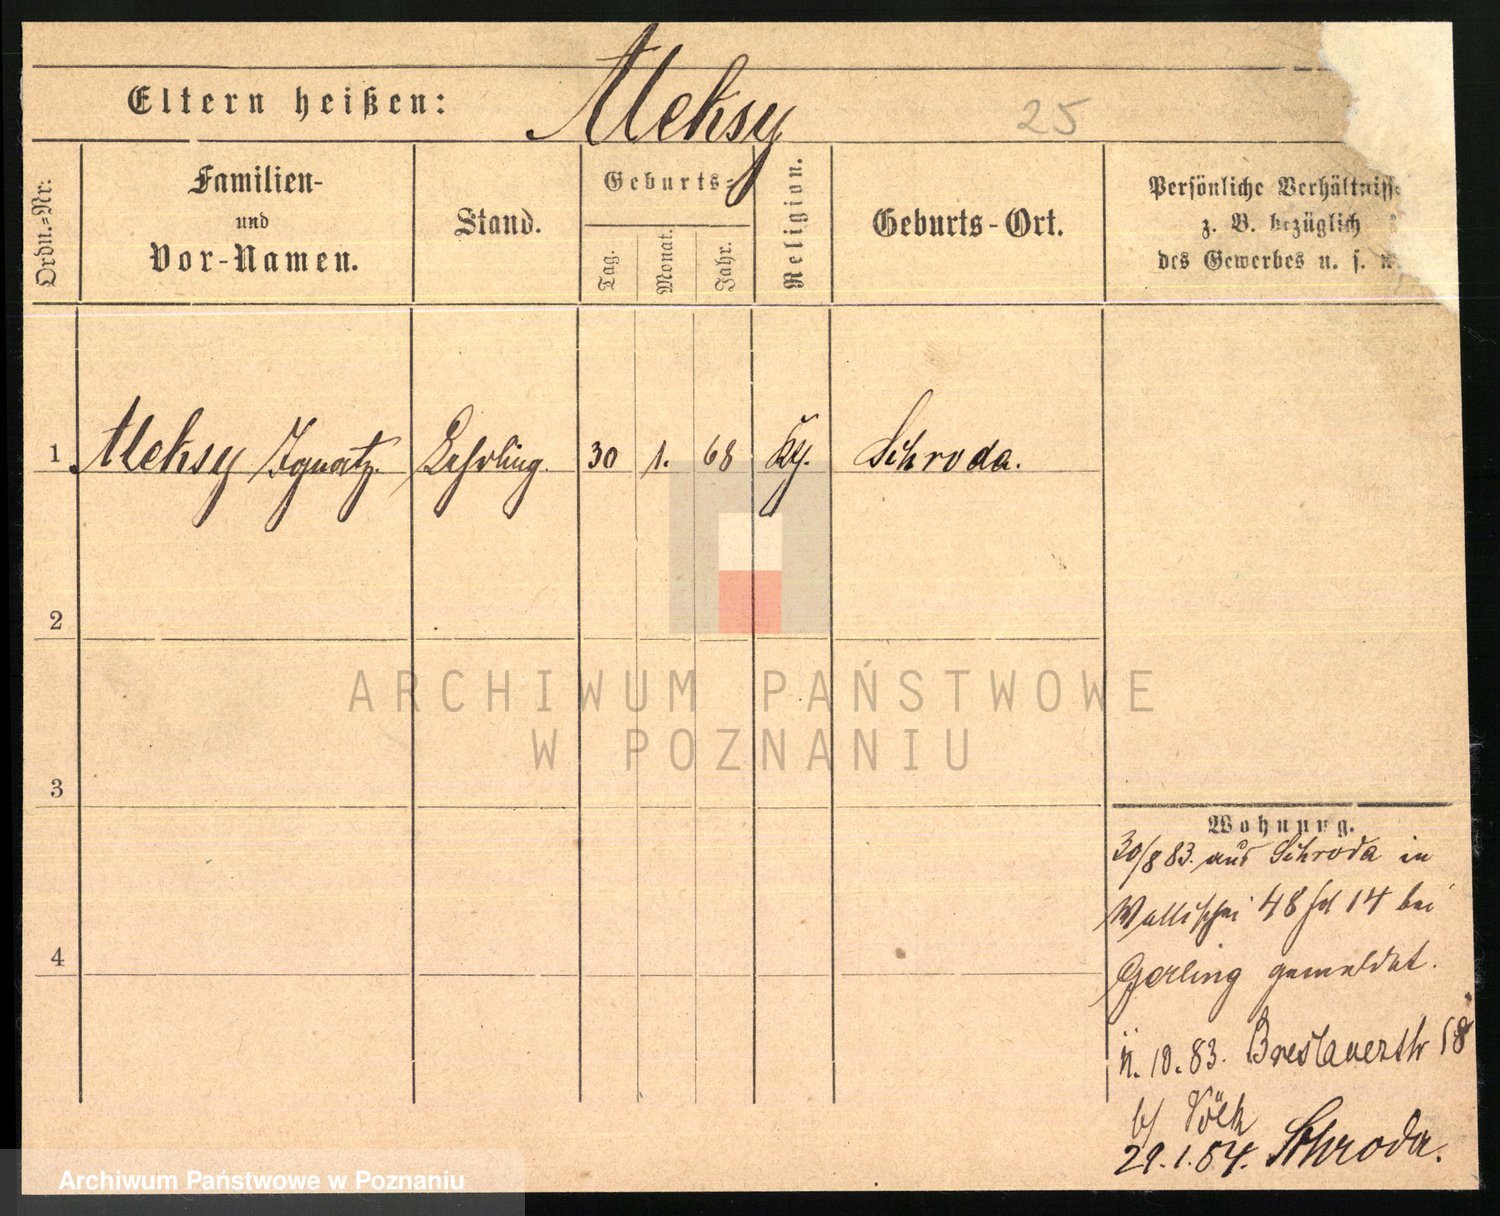 Eltern heißen: Aleksy 25
Ordn.-Nr.
Familien-
und
Vor-Namen.
Stand.
Geburts-
Tag.
Monat.
Jahr.
Religion.
Geburts-Ort.
Persönliche Verhältniss
z. B. bezüglich
des Gewerbes u. s. w.
1 Aleksy Ignatz. Lehrling. 30 1. 68 Schroda.
2
3
4
Wohnung.
30/8 83. aus Schroda in
Wallischei 48 14 bei
Gerling gemeldet.
10. 83. Breslauerstr 18
b/
29.1.84. Schroda.
ARCHIWUM PAŃSTWOWE
W POZNANIU
Archiwum Państwowe w Poznaniu